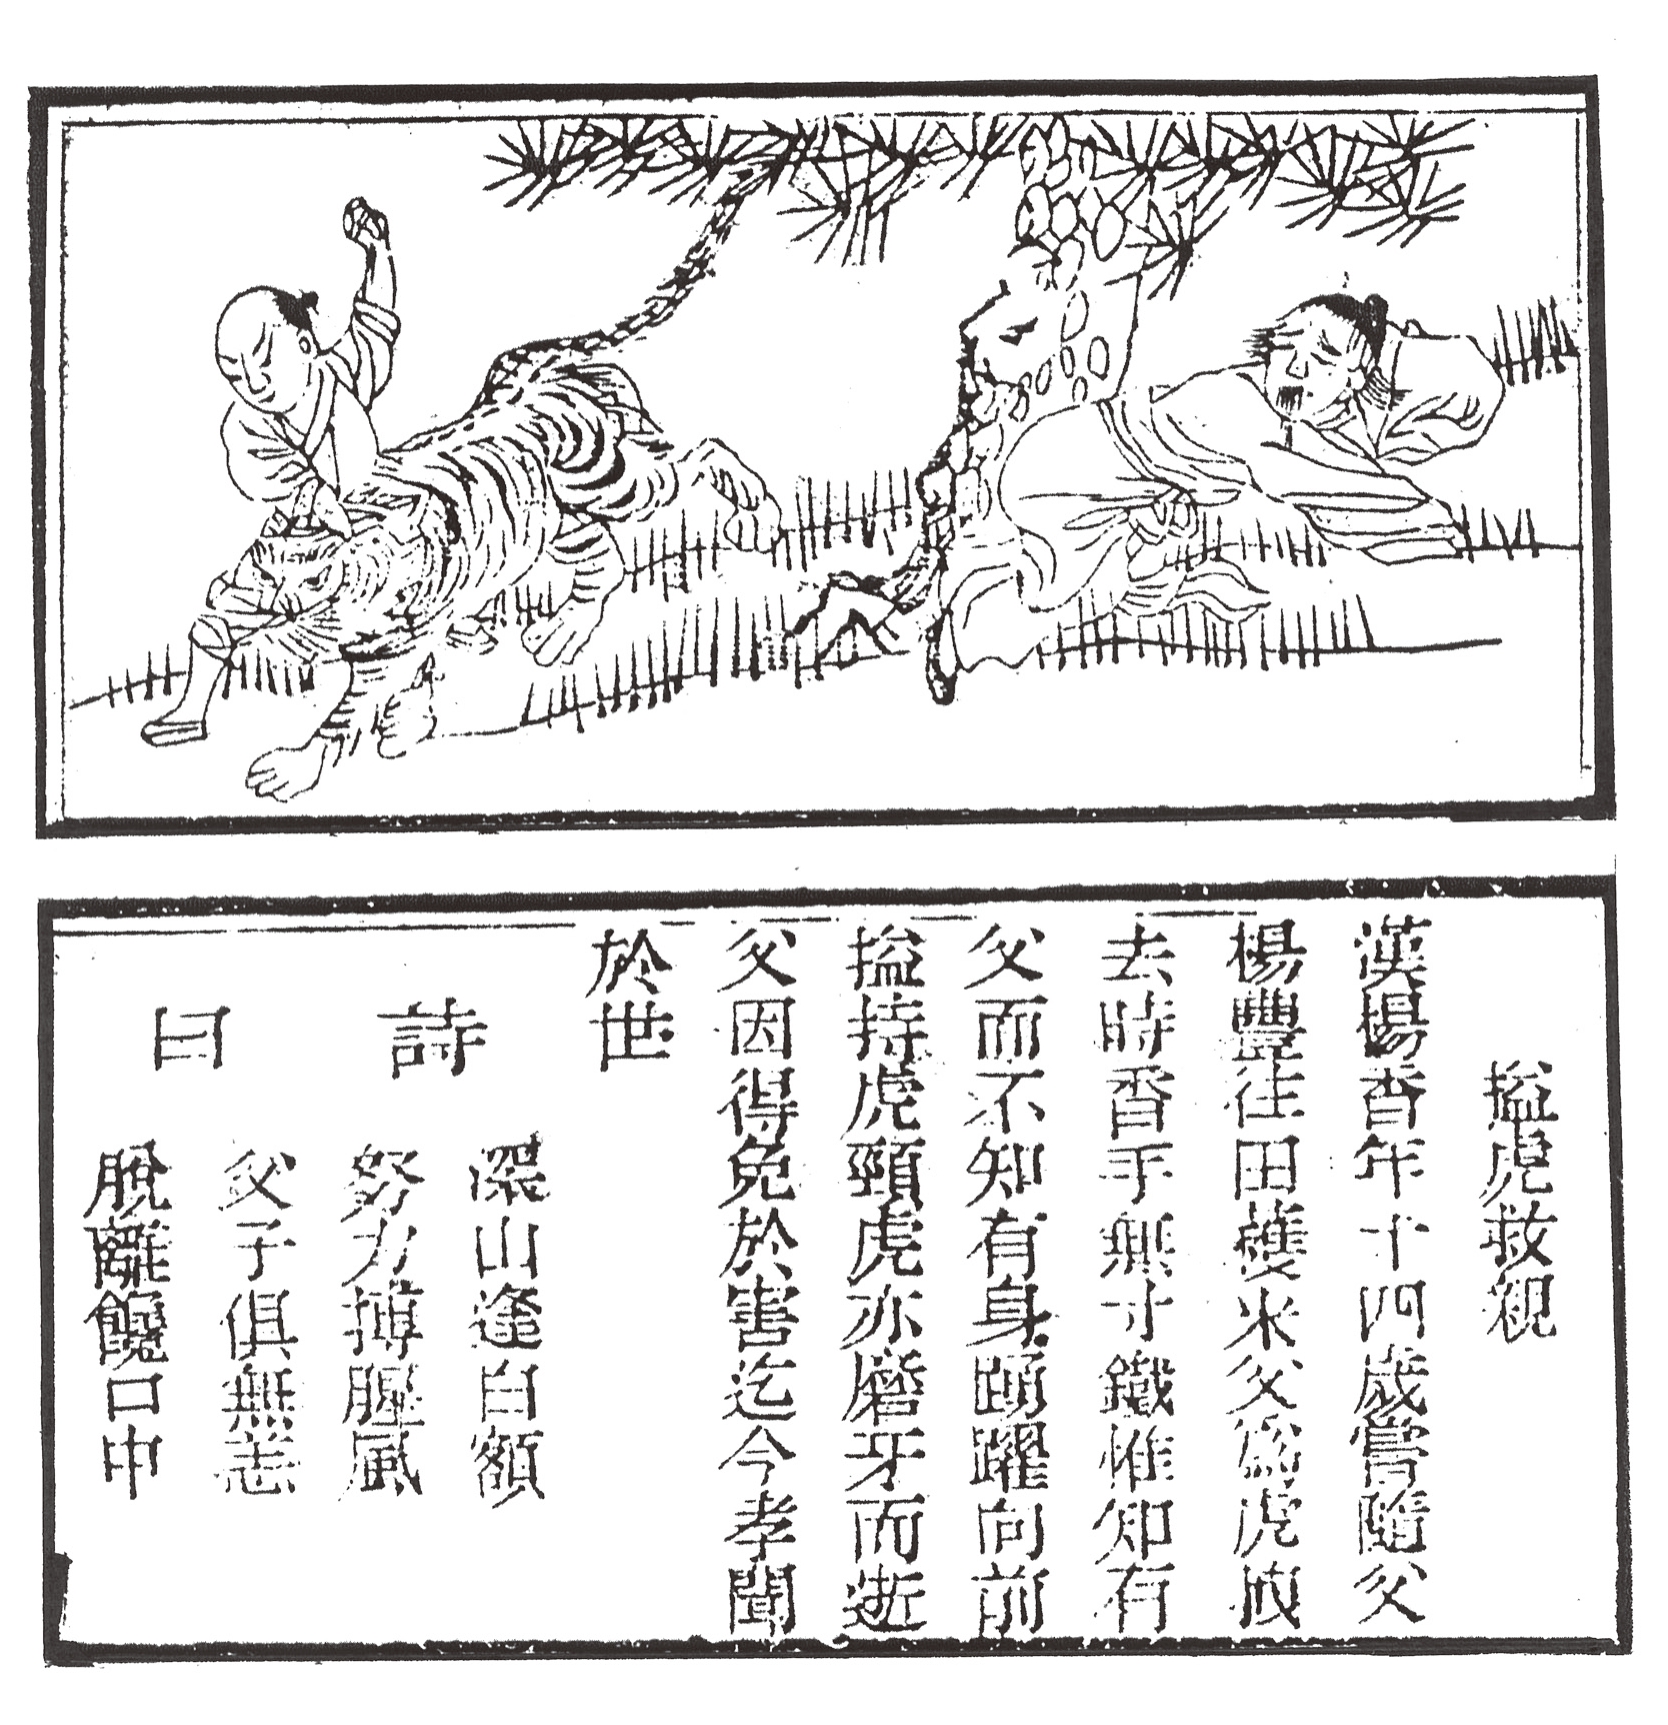 搤虎救親
漢楊香年十四歲嘗隨父
楊豐往田穫米父為虎曳
去時香手無寸鐵惟知有
父而不知有身踴躍向前
搤持虎頸虎亦磨牙而逝
父因得免於害迄今孝聞
於世
詩
曰
深山逢白額
努力搏腥風
父子俱無恙
脫離饞口中